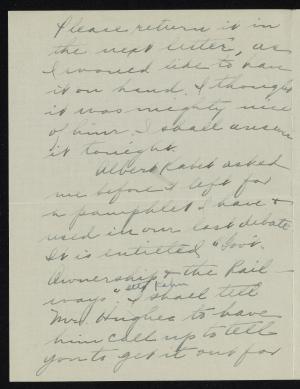 Please return it in
the next letter, as
I would like to have
it on hand. I thought
it was mighty nice
of him. I shall answer
it tonight.
Albert asked
me before I left for
a pamphlet I have &
used in our last debate.
It is intitled "Govt.
Ownership & the Rail-
ways". I shall tell
Mr. Hughes to have
him call up to tell
you to get it out for